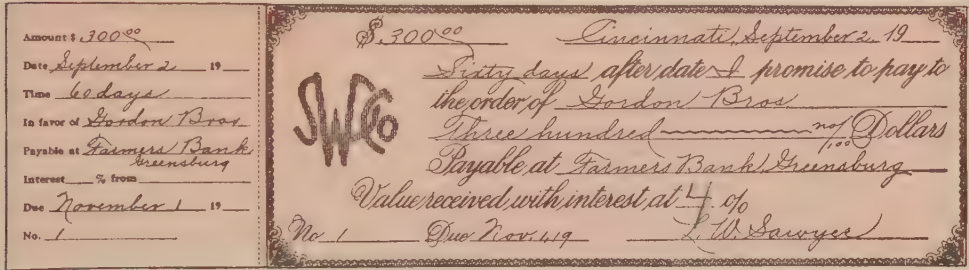 Amount $ 300 00
Date September 2 19
Time 60 days
In favor of Gordon Bros
Payable at Farmers Bank
Greensburg
Interest % from
Due November 1 19
No. 1
$ 300 00 Cincinnati, September 2 19
Sixty days after date I promise to pay to
the order of Gordon Bros.
Three hundred no/100 Dollars
Payable at Farmers Bank, Greensburg
Value received with interest at 4 %
No 1 Due Nov. 1, 19 L. W. Sawyer
SWCo